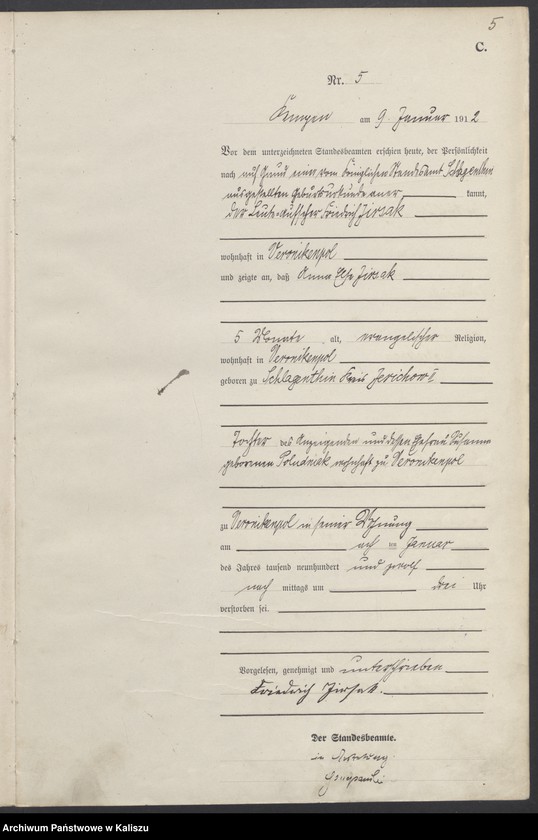 5
C.
Nr. 5
am 9 Januar 1912
Vor dem unterzeichneten Standesbeamten erschien heute, der Persönlichkeit
nach auf Grund einer vom Königlichen Standesamt Schlagenthin
ausgestellten Geburtsurkunde aner kannt,
der Leute-Aufseher Friedrich Jirsak
wohnhaft in Veronikenpol
und zeigte an, daß Anna Else Jirsak
5 Monate alt, evangelischer Religion,
wohnhaft in Veronikenpol
geboren zu Schlagenthin Kreis Jerichow I
Tochter des Anzeigenden und dessen Ehefrau Susanna
geborenen Poludniak wohnhaft zu Veronikenpol
zu Veronikenpol in seiner Wohnung
am acht ten Januar
des Jahres tausend neunhundert und zwölf
nach mittags um drei Uhr
verstorben sei.
Vorgelesen, genehmigt und unterschrieben
Friedrich Jirsak.
Der Standesbeamte.
in Vertretung
Archiwum Państwowe w Kaliszu